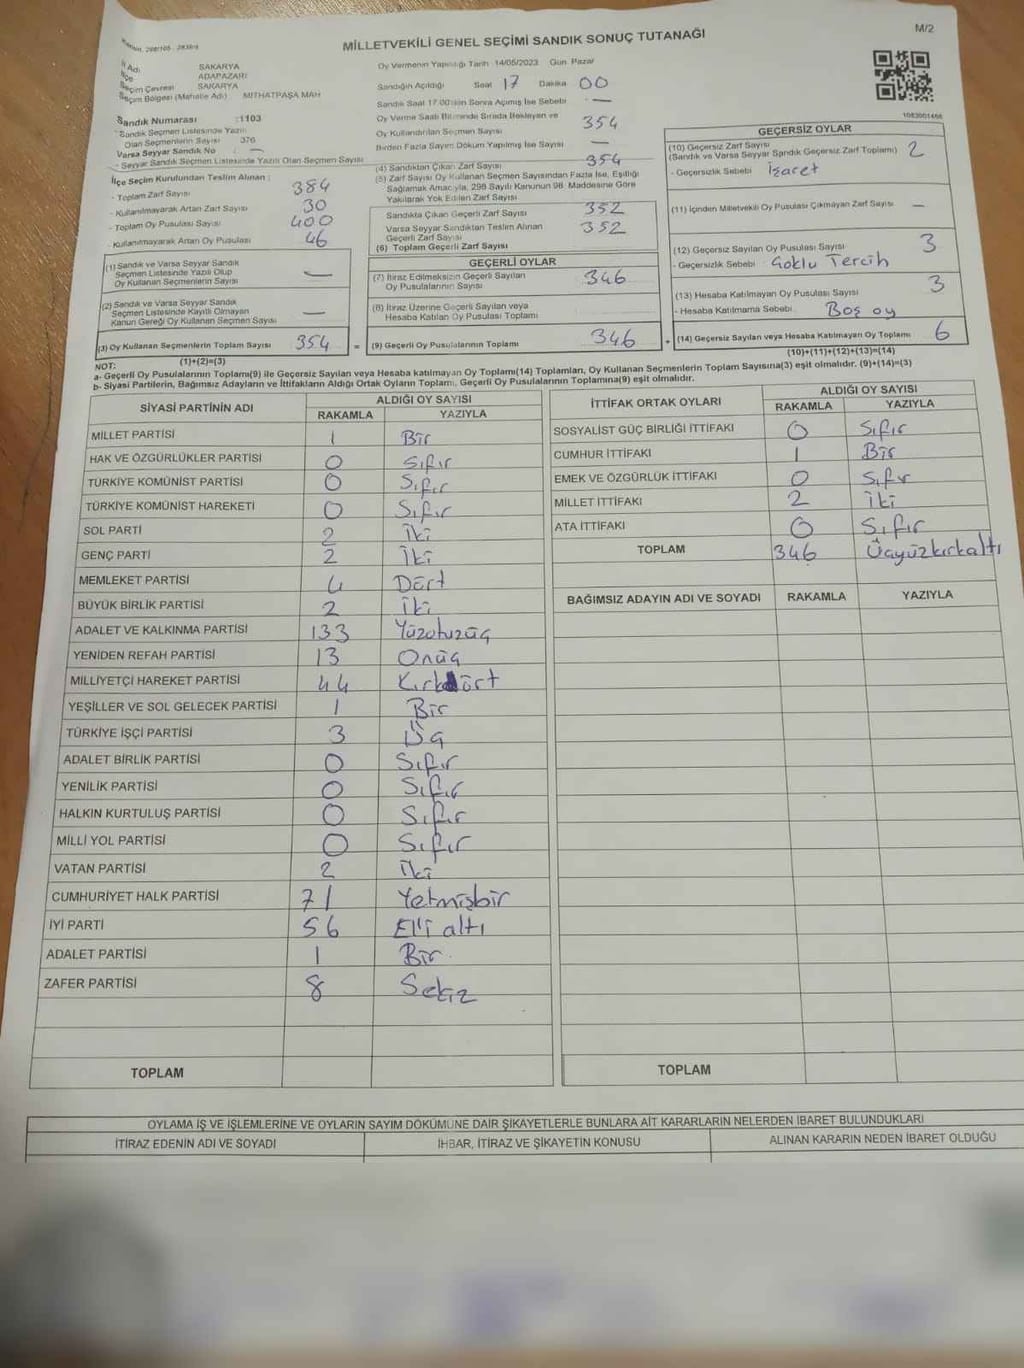 M/2
MİLLETVEKİLİ GENEL SEÇİMİ SANDIK SONUÇ TUTANAĞI
İl Adı SAKARYA
İlçe ADAPAZARI
Seçim Çevresi SAKARYA
Seçim Bölgesi (Mahalle Adı) MİTHATPAŞA MAH
Sandık Numarası :1103
Sandık Seçmen Listesinde Yazılı
Olan Seçmenlerin Sayısı 376
Varsa Seyyar Sandık No : —
- Seyyar Sandık Seçmen Listesinde Yazılı Olan Seçmen Sayısı
İlçe Seçim Kurulundan Teslim Alınan :
- Toplam Zarf Sayısı 384
- Kullanılmayarak Artan Zarf Sayısı 30
- Toplam Oy Pusulası Sayısı 400
- Kullanılmayarak Artan Oy Pusulası 46
(1) Sandık ve Varsa Seyyar Sandık
Seçmen Listesinde Yazılı Olup
Oy Kullanan Seçmenlerin Sayısı —
(2) Sandık ve Varsa Seyyar Sandık
Seçmen Listesinde Kayıtlı Olmayan
Kanun Gereği Oy Kullanan Seçmen Sayısı —
(3) Oy Kullanan Seçmenlerin Toplam Sayısı 354
(1)+(2)=(3)
Oy Vermenin Yapıldığı Tarih 14/05/2023 Gün Pazar
Sandığın Açıldığı Saat 17 Dakika 00
Sandık Saat 17:00'den Sonra Açımış İse Sebebi —
Oy Verme Saati Bitiminde Sırada Bekleyen ve
Oy Kullandırılan Seçmen Sayısı 354
Birden Fazla Sayım Döküm Yapılmış İse Sayısı —
(4) Sandıktan Çıkan Zarf Sayısı 354
(5) Zarf Sayısı Oy Kullanan Seçmen Sayısından Fazla İse, Eşitliği
Sağlamak Amacıyla, 298 Sayılı Kanunun 98. Maddesine Göre
Yakılarak Yok Edilen Zarf Sayısı
Sandıkta Çıkan Geçerli Zarf Sayısı 352
Varsa Seyyar Sandıktan Teslim Alınan
Geçerli Zarf Sayısı 352
(6) Toplam Geçerli Zarf Sayısı
GEÇERLİ OYLAR
(7) İtiraz Edilmeksizin Geçerli Sayılan
Oy Pusulalarının Sayısı 346
(8) İtiraz Üzerine Geçerli Sayılan veya
Hesaba Katılan Oy Pusulası Toplamı
= (9) Geçerli Oy Pusulalarının Toplamı 346
1083001466
GEÇERSİZ OYLAR
(10) Geçersiz Zarf Sayısı
(Sandık ve Varsa Seyyar Sandık Geçersiz Zarf Toplamı) 2
- Geçersizlik Sebebi İşaret
(11) İçinden Milletvekili Oy Pusulası Çıkmayan Zarf Sayısı —
(12) Geçersiz Sayılan Oy Pusulası Sayısı 3
- Geçersizlik Sebebi Çoklu Tercih
(13) Hesaba Katılmayan Oy Pusulası Sayısı 3
- Hesaba Katılmama Sebebi Boş oy
+ (14) Geçersiz Sayılan veya Hesaba Katılmayan Oy Toplamı 6
(10)+(11)+(12)+(13)=(14)
NOT:
a- Geçerli Oy Pusulalarının Toplamı(9) ile Geçersiz Sayılan veya Hesaba katılmayan Oy Toplamı(14) Toplamları, Oy Kullanan Seçmenlerin Toplam Sayısına(3) eşit olmalıdır. (9)+(14)=(3)
b- Siyasi Partilerin, Bağımsız Adayların ve İttifakların Aldığı Ortak Oyların Toplamı, Geçerli Oy Pusulalarının Toplamına(9) eşit olmalıdır.
SİYASİ PARTİNİN ADI ALDIĞI OY SAYISI
RAKAMLA YAZIYLA
MİLLET PARTİSİ 1 Bir
HAK VE ÖZGÜRLÜKLER PARTİSİ 0 Sıfır
TÜRKİYE KOMÜNİST PARTİSİ 0 Sıfır
TÜRKİYE KOMÜNİST HAREKETİ 0 Sıfır
SOL PARTİ 2 İki
GENÇ PARTİ 2 İki
MEMLEKET PARTİSİ 4 Dört
BÜYÜK BİRLİK PARTİSİ 2 İki
ADALET VE KALKINMA PARTİSİ 133 Yüzotuzüç
YENİDEN REFAH PARTİSİ 13 Onüç
MİLLİYETÇİ HAREKET PARTİSİ 44 Kırkdört
YEŞİLLER VE SOL GELECEK PARTİSİ 1 Bir
TÜRKİYE İŞÇİ PARTİSİ 3 Üç
ADALET BİRLİK PARTİSİ 0 Sıfır
YENİLİK PARTİSİ 0 Sıfır
HALKIN KURTULUŞ PARTİSİ 0 Sıfır
MİLLİ YOL PARTİSİ 0 Sıfır
VATAN PARTİSİ 2 İki
CUMHURİYET HALK PARTİSİ 71 Yetmişbir
İYİ PARTİ 56 Elli altı
ADALET PARTİSİ 1 Bir
ZAFER PARTİSİ 8 Sekiz
TOPLAM
İTTİFAK ORTAK OYLARI ALDIĞI OY SAYISI
RAKAMLA YAZIYLA
SOSYALİST GÜÇ BİRLİĞİ İTTİFAKI 0 Sıfır
CUMHUR İTTİFAKI 1 Bir
EMEK VE ÖZGÜRLÜK İTTİFAKI 0 Sıfır
MİLLET İTTİFAKI 2 İki
ATA İTTİFAKI 0 Sıfır
TOPLAM 346 Üçyüzkırkaltı
BAĞIMSIZ ADAYIN ADI VE SOYADI RAKAMLA YAZIYLA
TOPLAM
OYLAMA İŞ VE İŞLEMLERİNE VE OYLARIN SAYIM DÖKÜMÜNE DAİR ŞİKAYETLERLE BUNLARA AİT KARARLARIN NELERDEN İBARET BULUNDUKLARI
İTİRAZ EDENİN ADI VE SOYADI İHBAR, İTİRAZ VE ŞİKAYETİN KONUSU ALINAN KARARIN NEDEN İBARET OLDUĞU